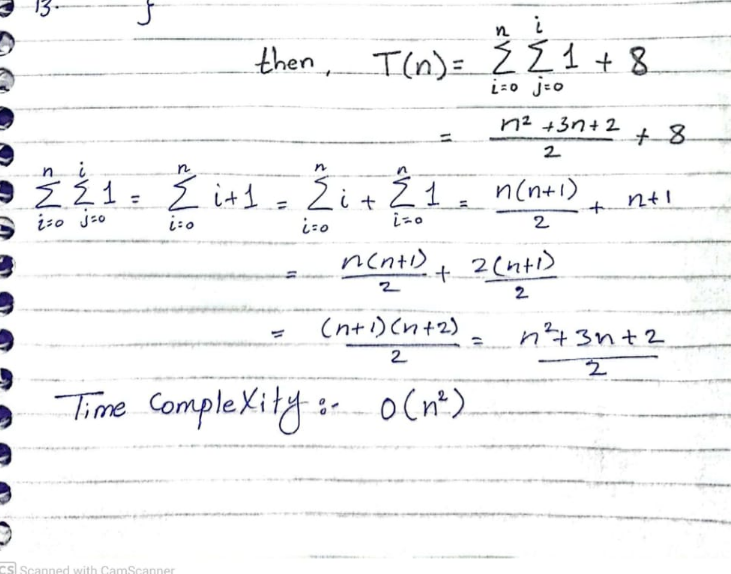 13. }
then, T(n) = n∑i=0 i∑j=0 1 + 8
= n² + 3n + 2 / 2 + 8
n∑i=0 i∑j=0 1 = n∑i=0 i+1 = n∑i=0 i + n∑i=0 1 = n(n+1) / 2 + n+1
= n(n+1) / 2 + 2(n+1) / 2
= (n+1)(n+2) / 2 = n² + 3n + 2 / 2
Time Complexity :- O(n²)
CS Scanned with CamScanner